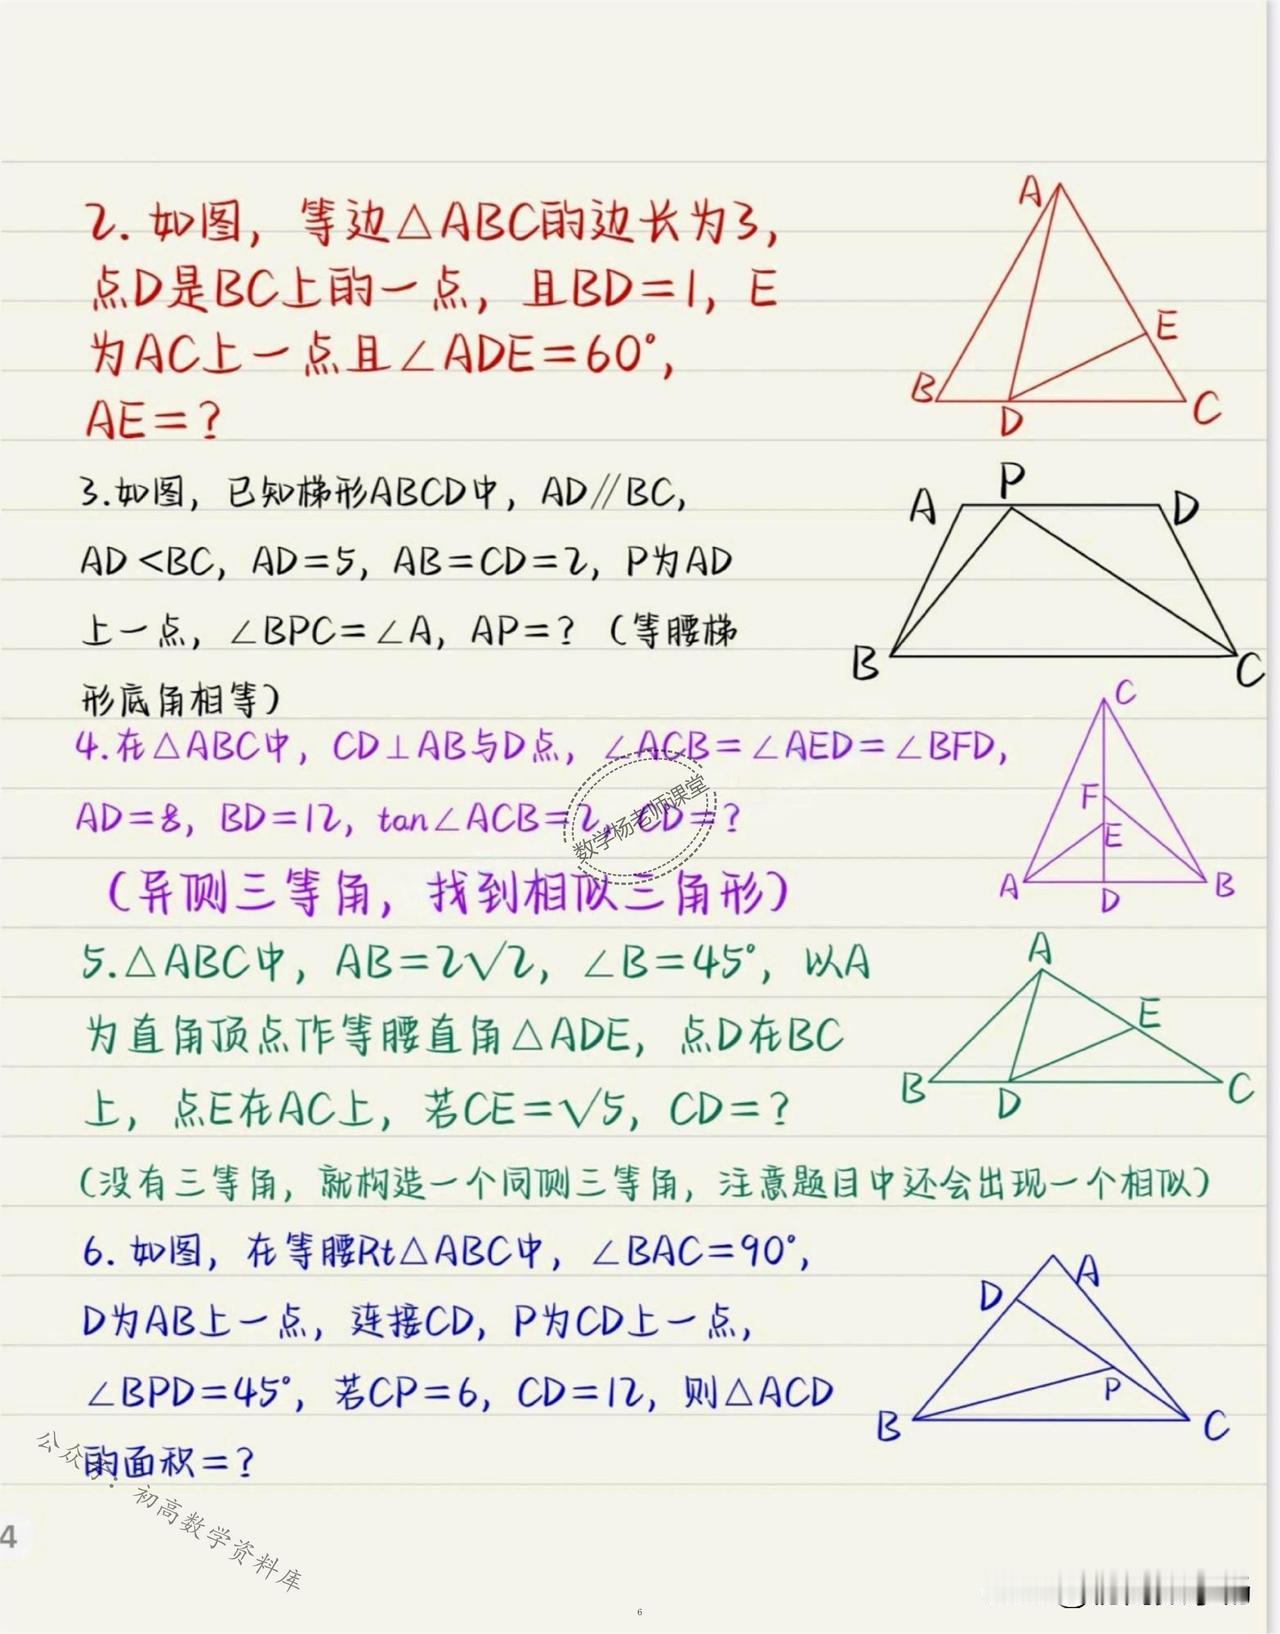 2. 如图，等边△ABC的边长为3，
点D是BC上的一点，且BD=1，E
为AC上一点且∠ADE=60°，
AE=?
A
E
B
D
C
3.如图，已知梯形ABCD中，AD∥BC，
AD<BC，AD=5，AB=CD=2，P为AD
上一点，∠BPC=∠A，AP=?（等腰梯
形底角相等）
P
A
D
B
C
4.在△ABC中，CD⊥AB与D点，∠ACB=∠AED=∠BFD，
AD=8，BD=12，tan∠ACB=2，CD=?
（异侧三等角，找到相似三角形）
C
F
E
A
D
B
数学杨老师课堂
5.△ABC中，AB=2√2，∠B=45°，以A
为直角顶点作等腰直角△ADE，点D在BC
上，点E在AC上，若CE=√5，CD=?
（没有三等角，就构造一个同侧三等角，注意题目中还会出现一个相似）
A
E
B
D
C
6. 如图，在等腰Rt△ABC中，∠BAC=90°，
D为AB上一点，连接CD，P为CD上一点，
∠BPD=45°，若CP=6，CD=12，则△ACD
的面积=?
A
D
P
B
C
公众号：初高数学资料库
4
6